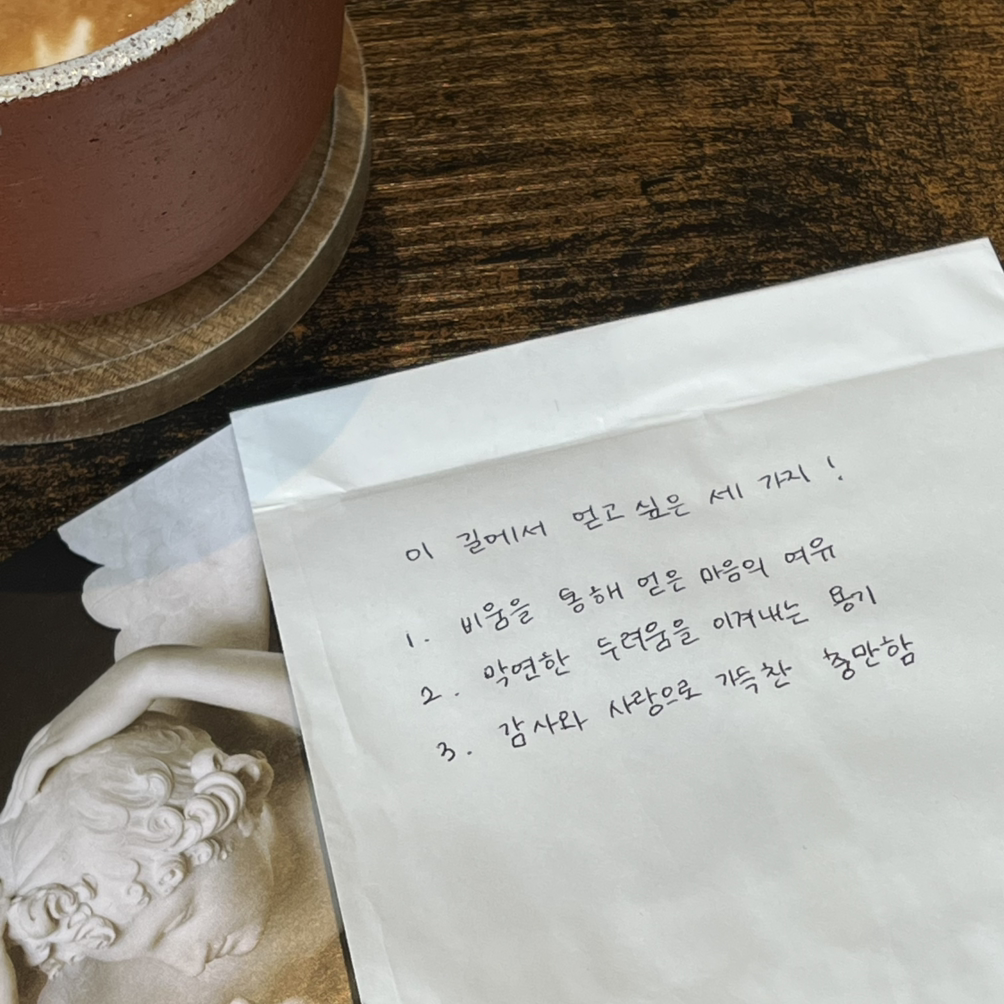 이 길에서 얻고 싶은 세 가지 !
1. 비움을 통해 얻은 마음의 여유
2. 막연한 두려움을 이겨내는 용기
3. 감사와 사랑으로 가득찬 충만함